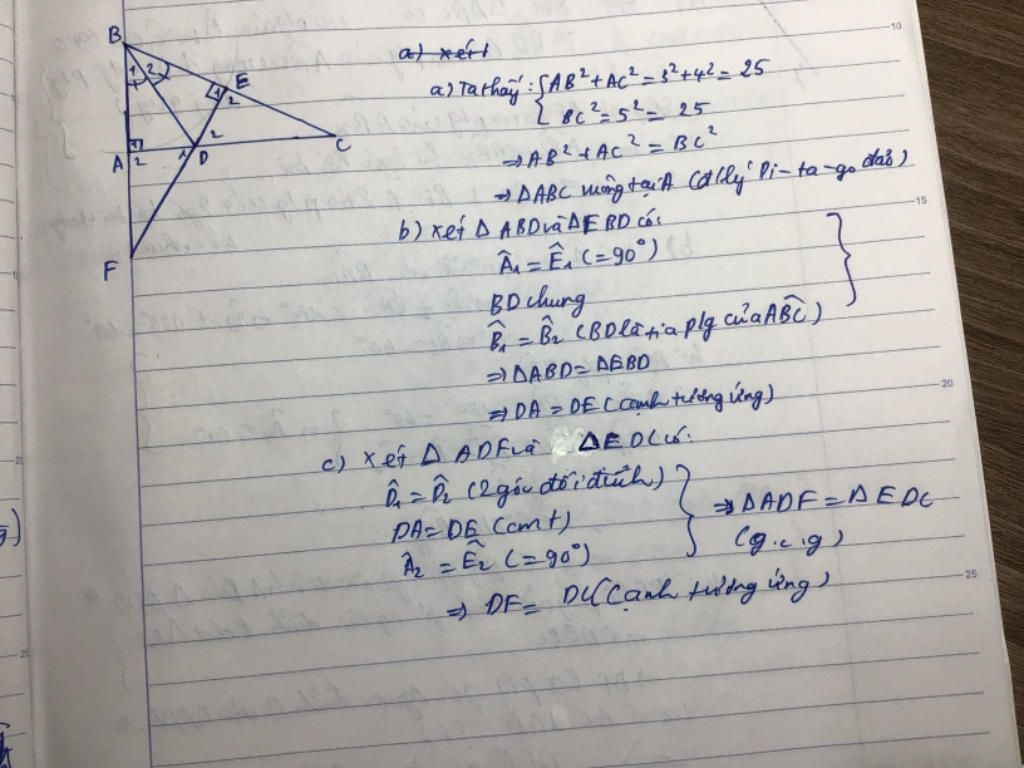 B
1 2
E
1 2
A
2
1 D
2
C
F
a) xét
a) Ta thấy: { AB² + AC² = 3² + 4² = 25
BC² = 5² = 25
⇒ AB² + AC² = BC²
⇒ ΔABC vuông tại A (đ/lý Pi-ta-go đảo)
b) xét Δ ABD và Δ EBD có:
Â₁ = Ê₁ (=90°)
BD chung
B̂₁ = B̂₂ (BD là tia plg của AB̂C)
⇒ ΔABD = ΔEBD
⇒ DA = DE (cạnh tương ứng)
c) xét Δ ADF và ΔEDC có:
D̂₁ = D̂₂ (2 góc đối đỉnh)
DA = DE (cmt)
Â₂ = Ê₂ (=90°)
⇒ ΔADF = ΔEDC
(g.c.g)
⇒ DF = DC (cạnh tương ứng)
10
15
20
25